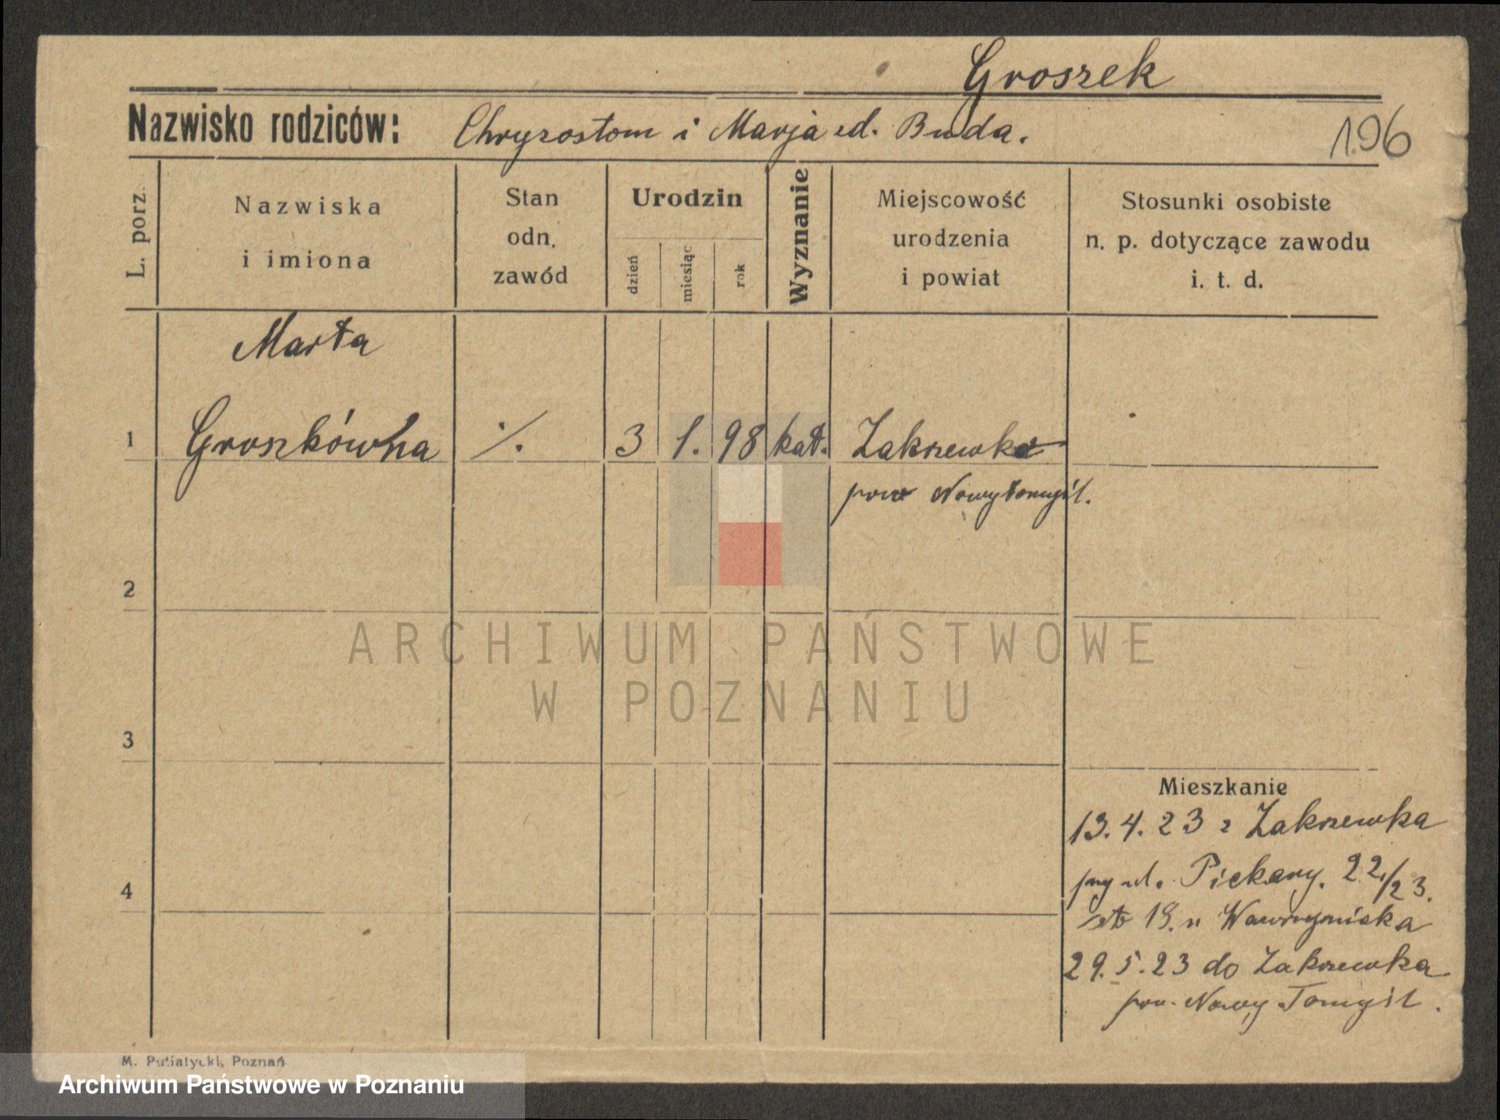 Groszek
Nazwisko rodziców: Chryzostom i Marja zd. Buda.
196
L. porz.
Nazwiska
i imiona
Stan
odn.
zawód
Urodzin
dzień
miesiąc
rok
Wyznanie
Miejscowość
urodzenia
i powiat
Stosunki osobiste
n. p. dotyczące zawodu
i. t. d.
Marta
1 Groszkówna ./. 3 1. 98 kat. Zakrzewko
pow Nowytomyśl.
2
3
4
ARCHIWUM PAŃSTWOWE
W POZNANIU
Mieszkanie
13.4.23 z Zakrzewka
przy ul. Piekary. 22/23.
18. u Wawrzyniaka
29.5.23 do Zakrzewka
pow. Nowy Tomyśl.
M. Putiatycki, Poznań
Archiwum Państwowe w Poznaniu